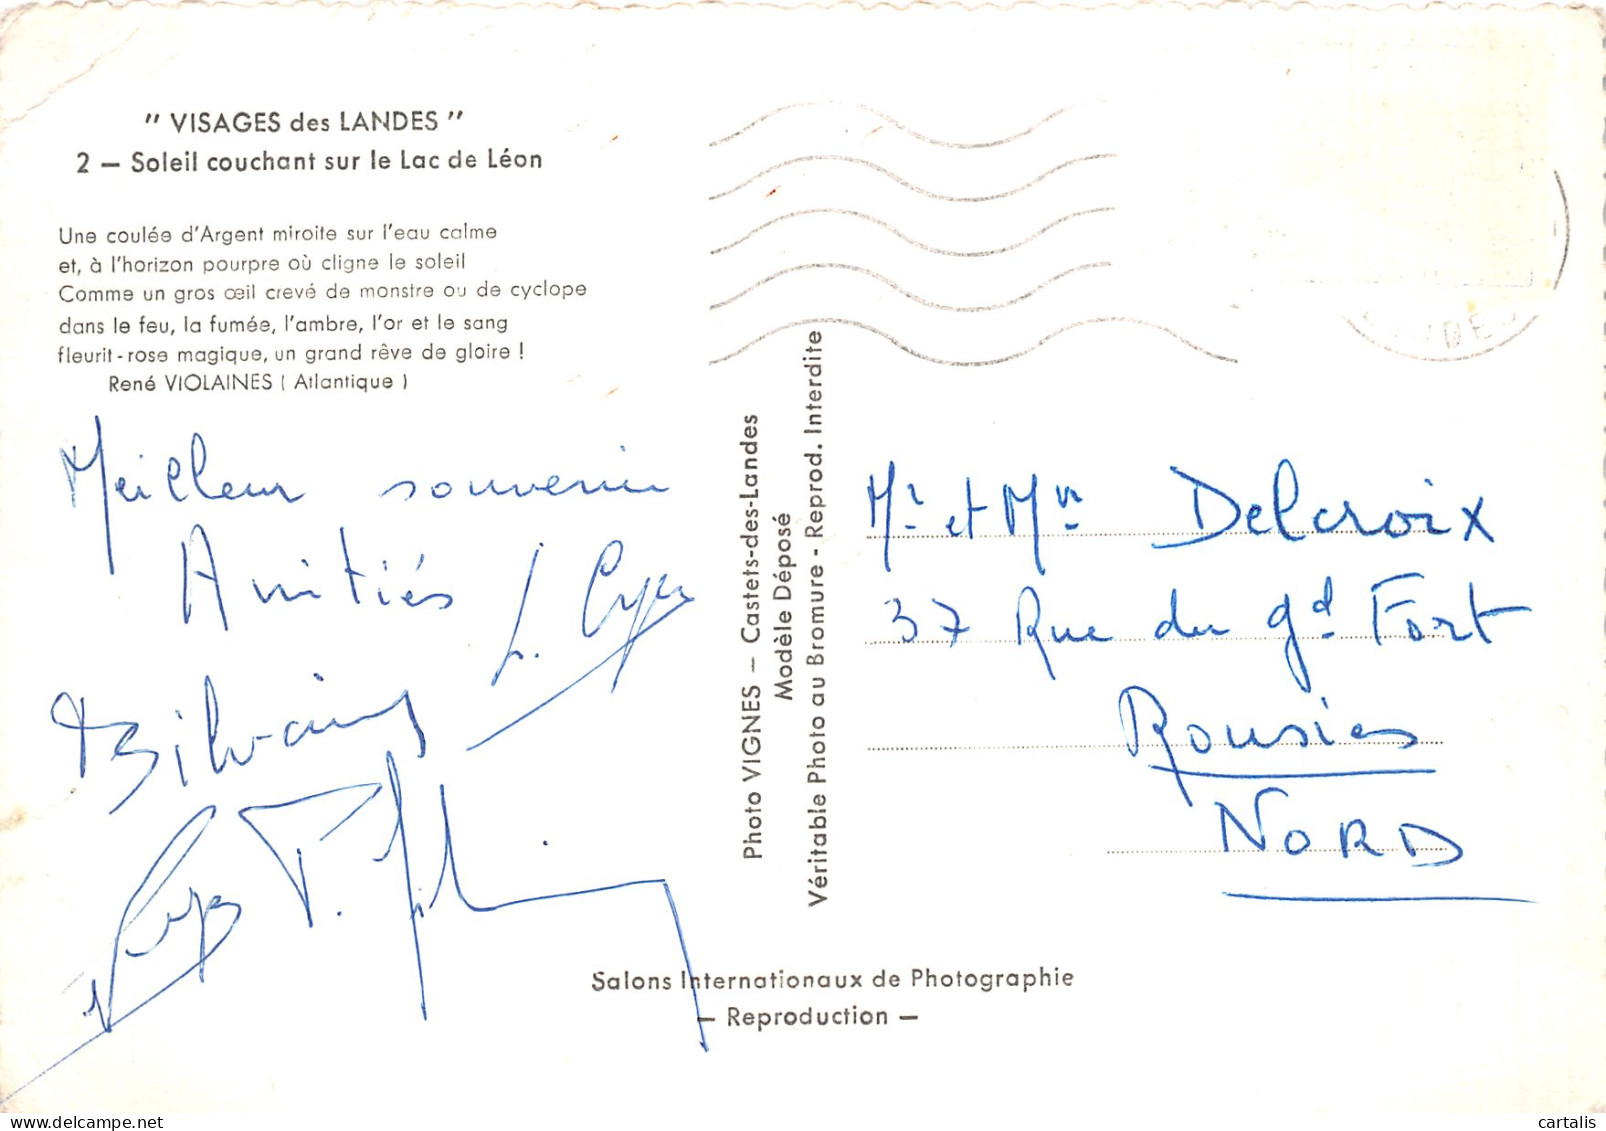 " VISAGES des LANDES "
2 — Soleil couchant sur le Lac de Léon
Une coulée d'Argent miroite sur l'eau calme
et, à l'horizon pourpre où cligne le soleil
Comme un gros œil crevé de monstre ou de cyclope
dans le feu, la fumée, l'ambre, l'or et le sang
fleurit-rose magique, un grand rêve de gloire !
René VIOLAINES ( Atlantique )
Meilleur souvenir
Amitiés
Photo VIGNES — Castets-des-Landes
Modèle Déposé
Véritable Photo au Bromure - Reprod. Interdite
Mr et Mme Delcroix
37 Rue du gd Fort
Rousies
NORD
Salons Internationaux de Photographie
— Reproduction —
cartalis